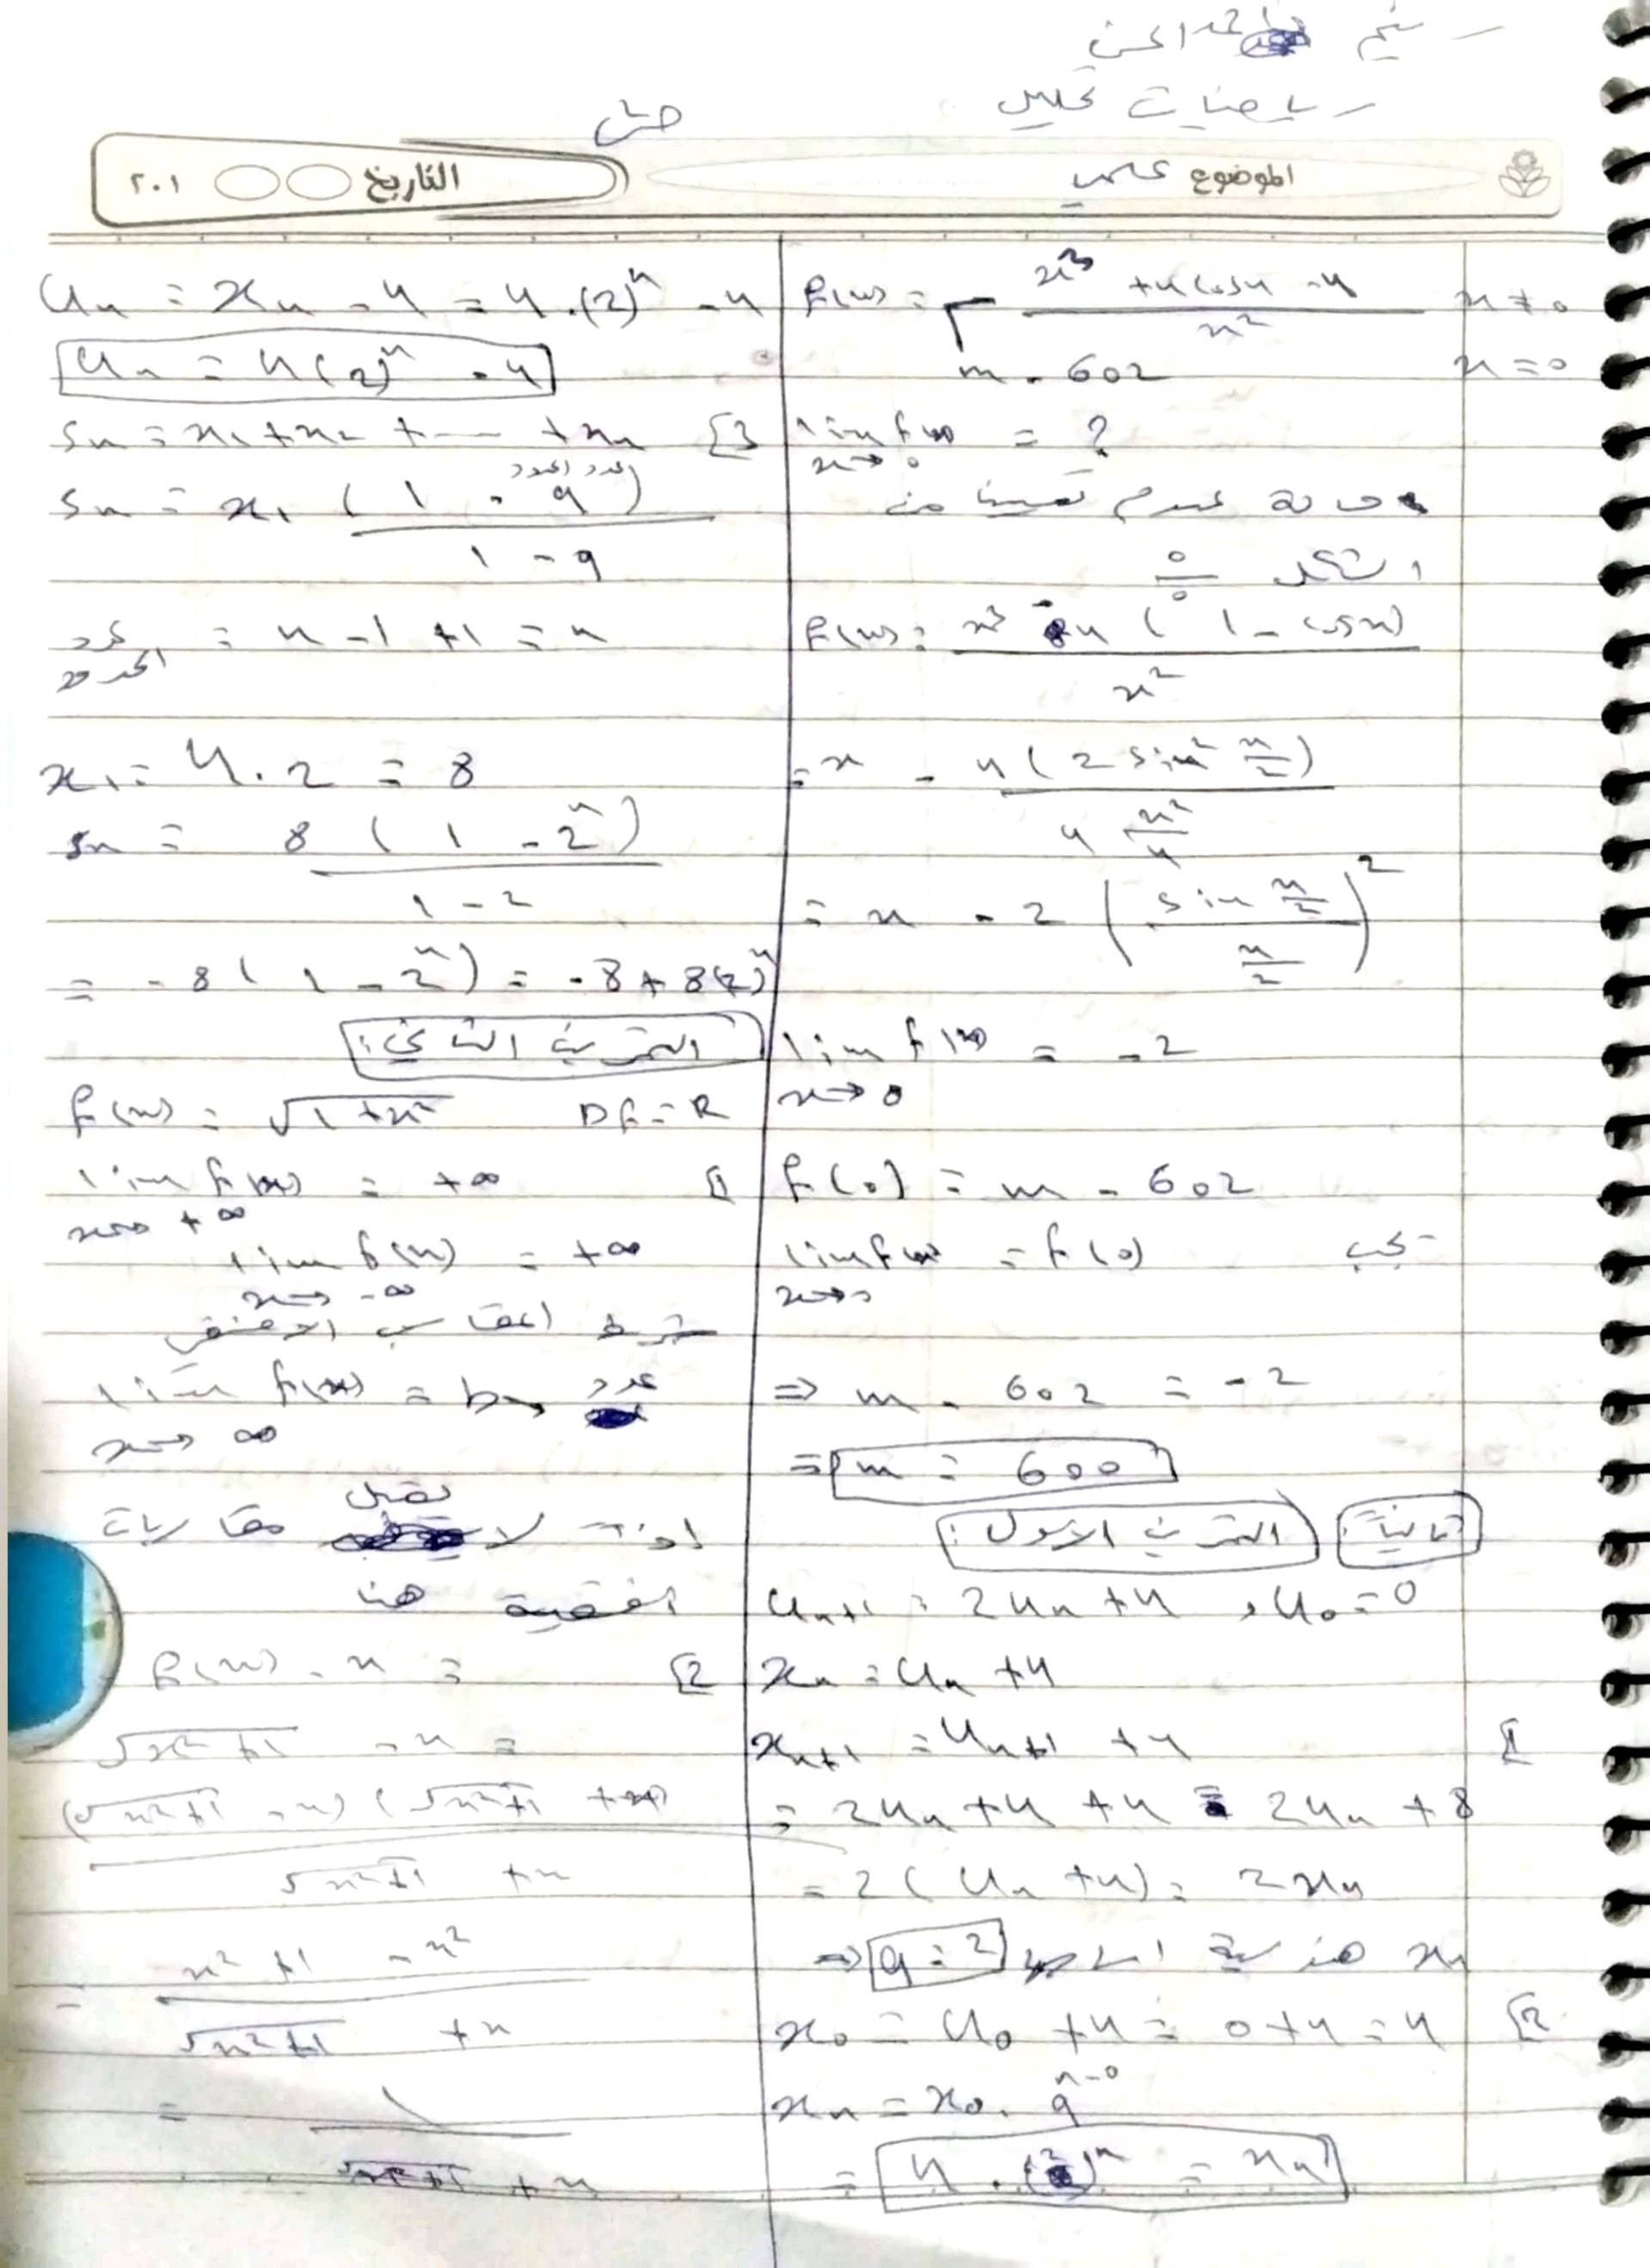 رياضيات تحليل
حمص
الموضوع علمي
التاريخ ٢٠١
f(x) = { x³ + 4cosx - 4 / x² x ≠ 0
m - 602 x = 0
lim f(x) = ?
x → 0
حالة عدم تعيين من
الشكل 0/0
f(x) = x³ - 4(1 - cosx) / x²
= x - 4(2 sin² x/2) / 4 x²/4
= x - 2 (sin x/2 / x/2)²
lim f(x) = -2
x → 0
f(0) = m - 602
يجب lim f(x) = f(0)
x → 0
⇒ m - 602 = -2
⇒ m = 600
ثانياً: التمرين الأول:
u_{n+1} = 2u_n + 4 , u_0 = 0
x_n = u_n + 4
1] x_{n+1} = u_{n+1} + 4
= 2u_n + 4 + 4 = 2u_n + 8
= 2(u_n + 4) = 2x_n
x_n هندسية أساسها q = 2 ⇐
2] x_0 = u_0 + 4 = 0 + 4 = 4
x_n = x_0 . q^{n-0}
= 4 . (2)^n = x_n
u_n = x_n - 4 = 4.(2)^n - 4
u_n = 4(2)^n - 4
3] s_n = x_1 + x_2 + ---- + x_n
s_n = x_1 (1 - q^{عدد الحدود}) / 1 - q
عدد الحدود = n - 1 + 1 = n
x_1 = 4 . 2 = 8
s_n = 8 (1 - 2^n) / 1 - 2
= -8(1 - 2^n) = -8 + 8(2)^n
التمرين الثاني:
f(x) = √(1 + x²) Df = R
1] lim f(x) = +∞
x → +∞
lim f(x) = +∞
x → -∞
شرط المقارب الأفقي
lim f(x) = b → عدد
x → ∞
إذن لا يقبل مقاربات
أفقية هنا
2] f(x) - x =
√(x² + 1) - x =
(√(x² + 1) - x)(√(x² + 1) + x)
√(x² + 1) + x
= x² + 1 - x²
√(x² + 1) + x
= 1
√(x² + 1) + x